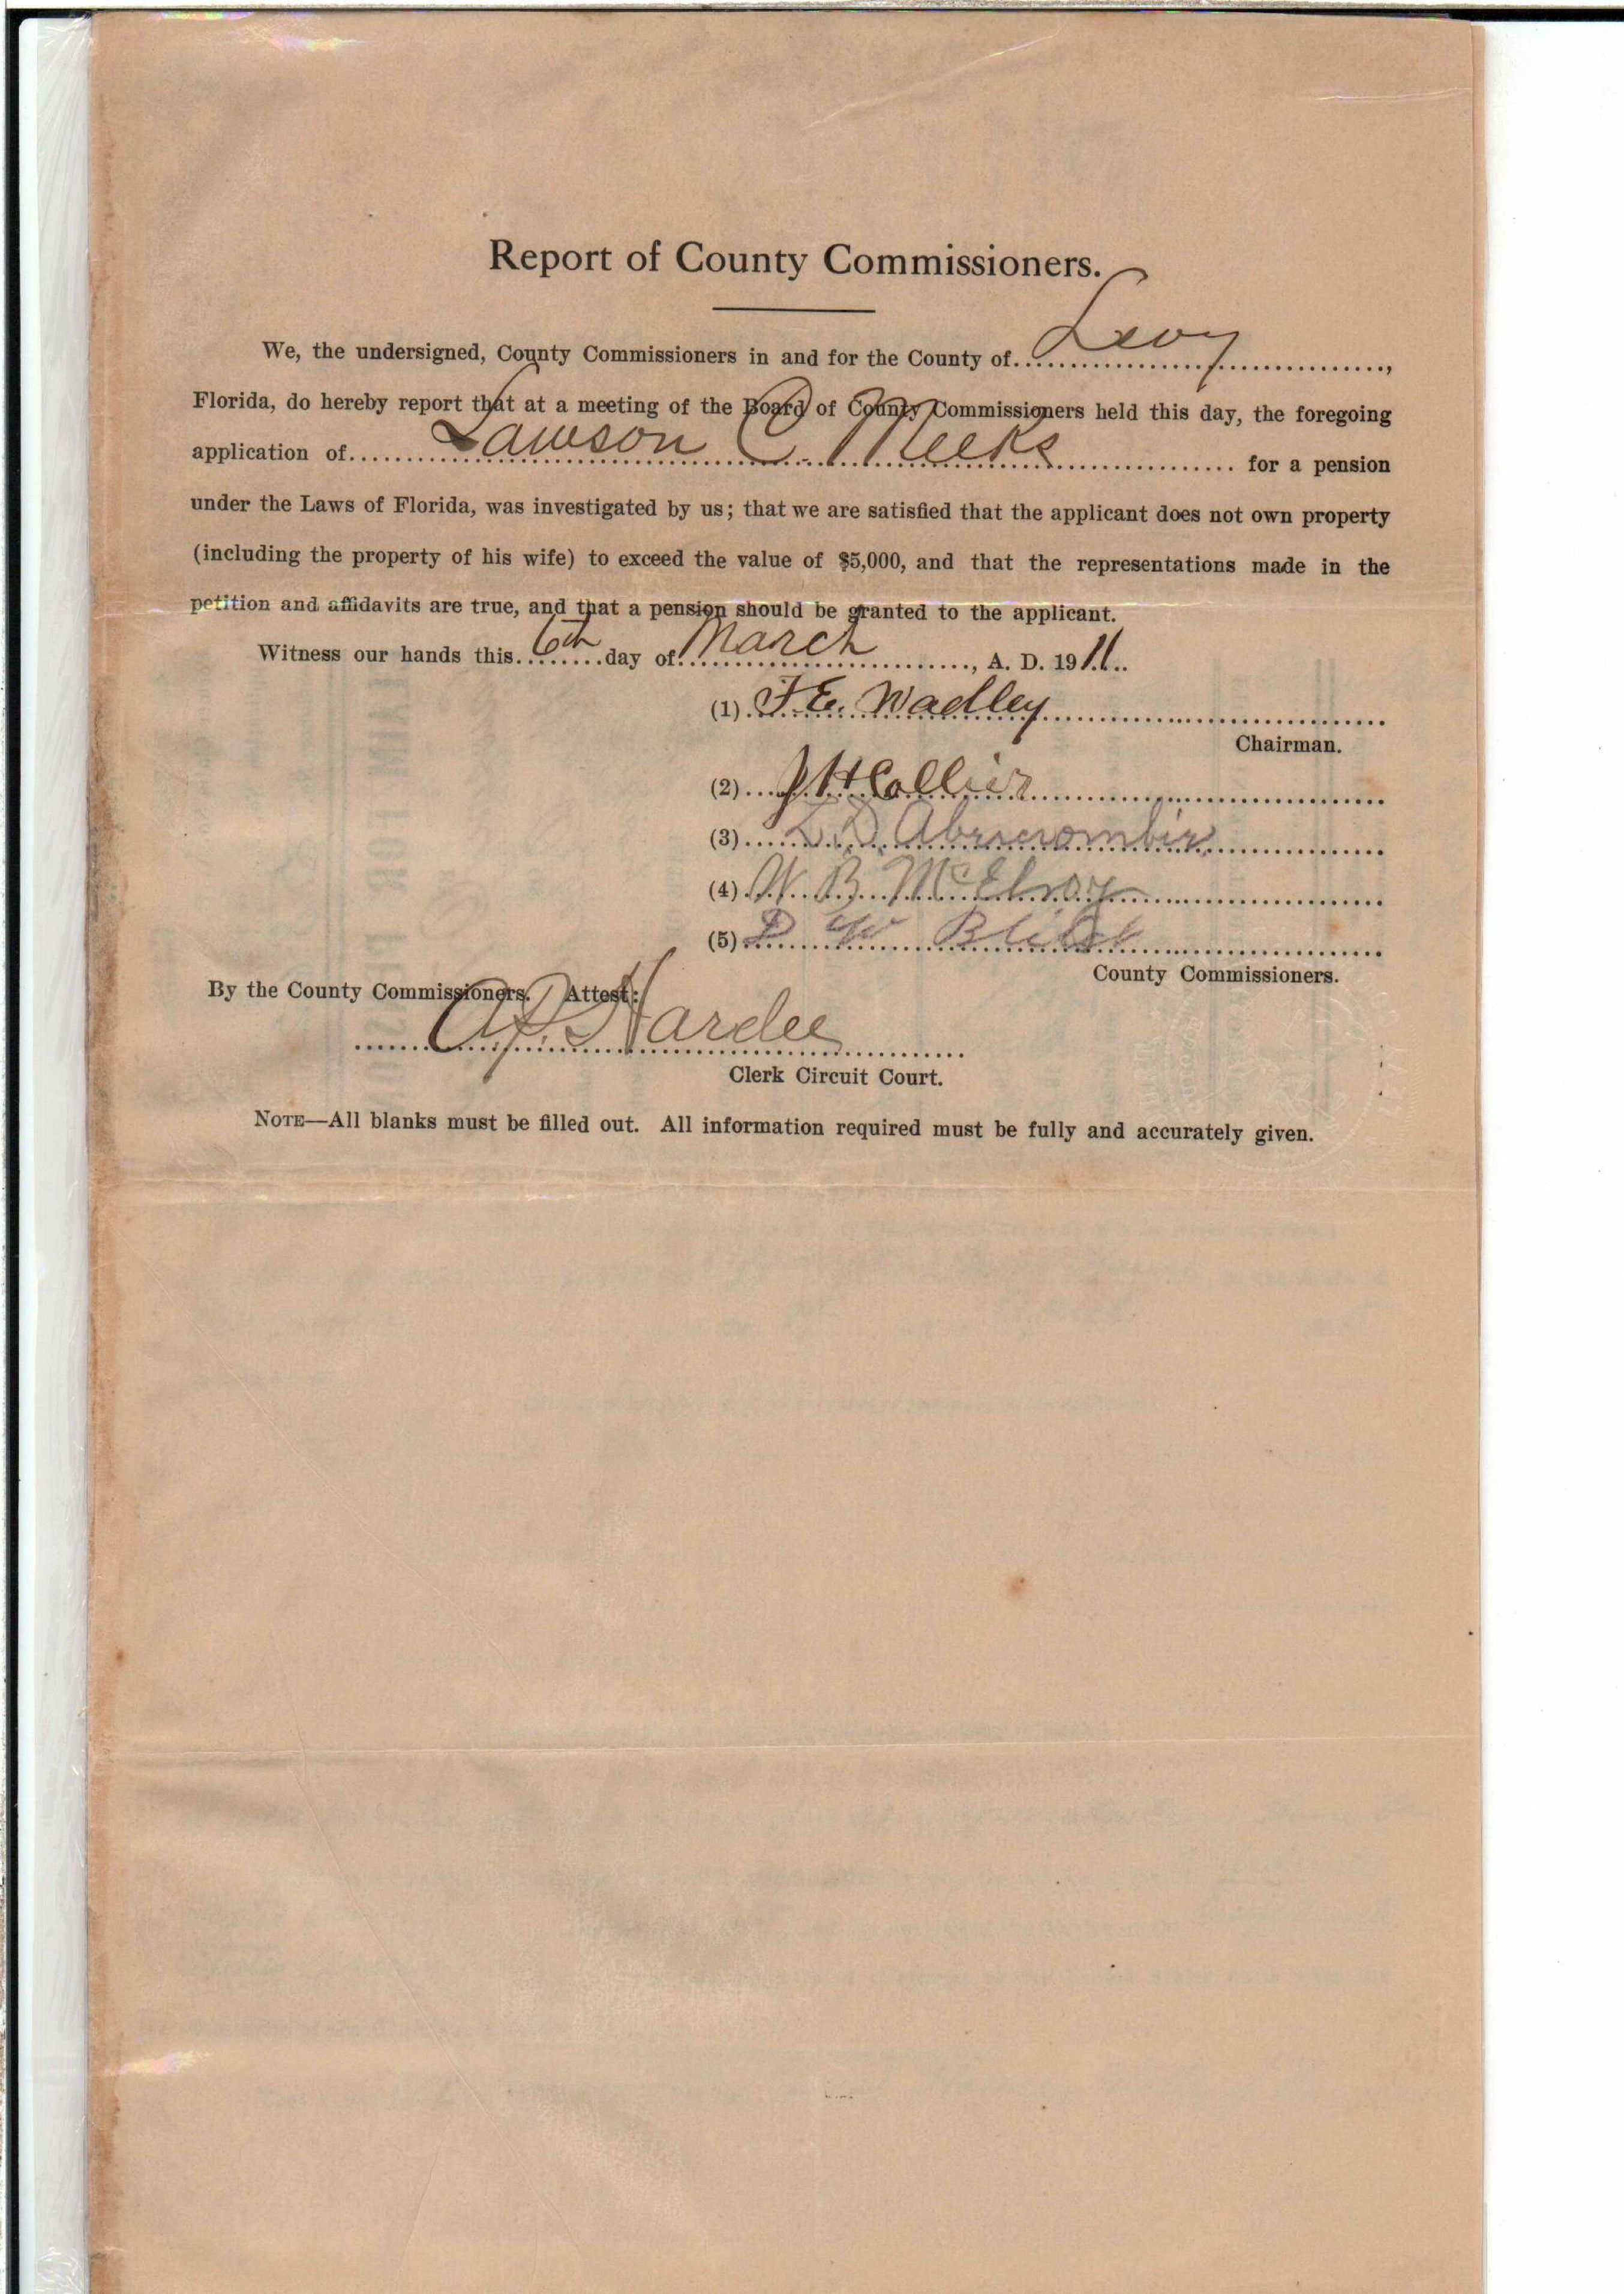 Report of County Commissioners.
We, the undersigned, County Commissioners in and for the County of Levy,
Florida, do hereby report that at a meeting of the Board of County Commissioners held this day, the foregoing
application of Lawson C. Meeks for a pension
under the Laws of Florida, was investigated by us; that we are satisfied that the applicant does not own property
(including the property of his wife) to exceed the value of $5,000, and that the representations made in the
petition and affidavits are true, and that a pension should be granted to the applicant.
Witness our hands this 6th day of March, A. D. 1911.
(1) F. E. Wadley
Chairman.
(2) J H Collier
(3) L. D. Abercrombie
(4) W. B. McElroy
(5) D W
County Commissioners.
By the County Commissioners. Attest:
Hardee
Clerk Circuit Court.
NOTE—All blanks must be filled out. All information required must be fully and accurately given.